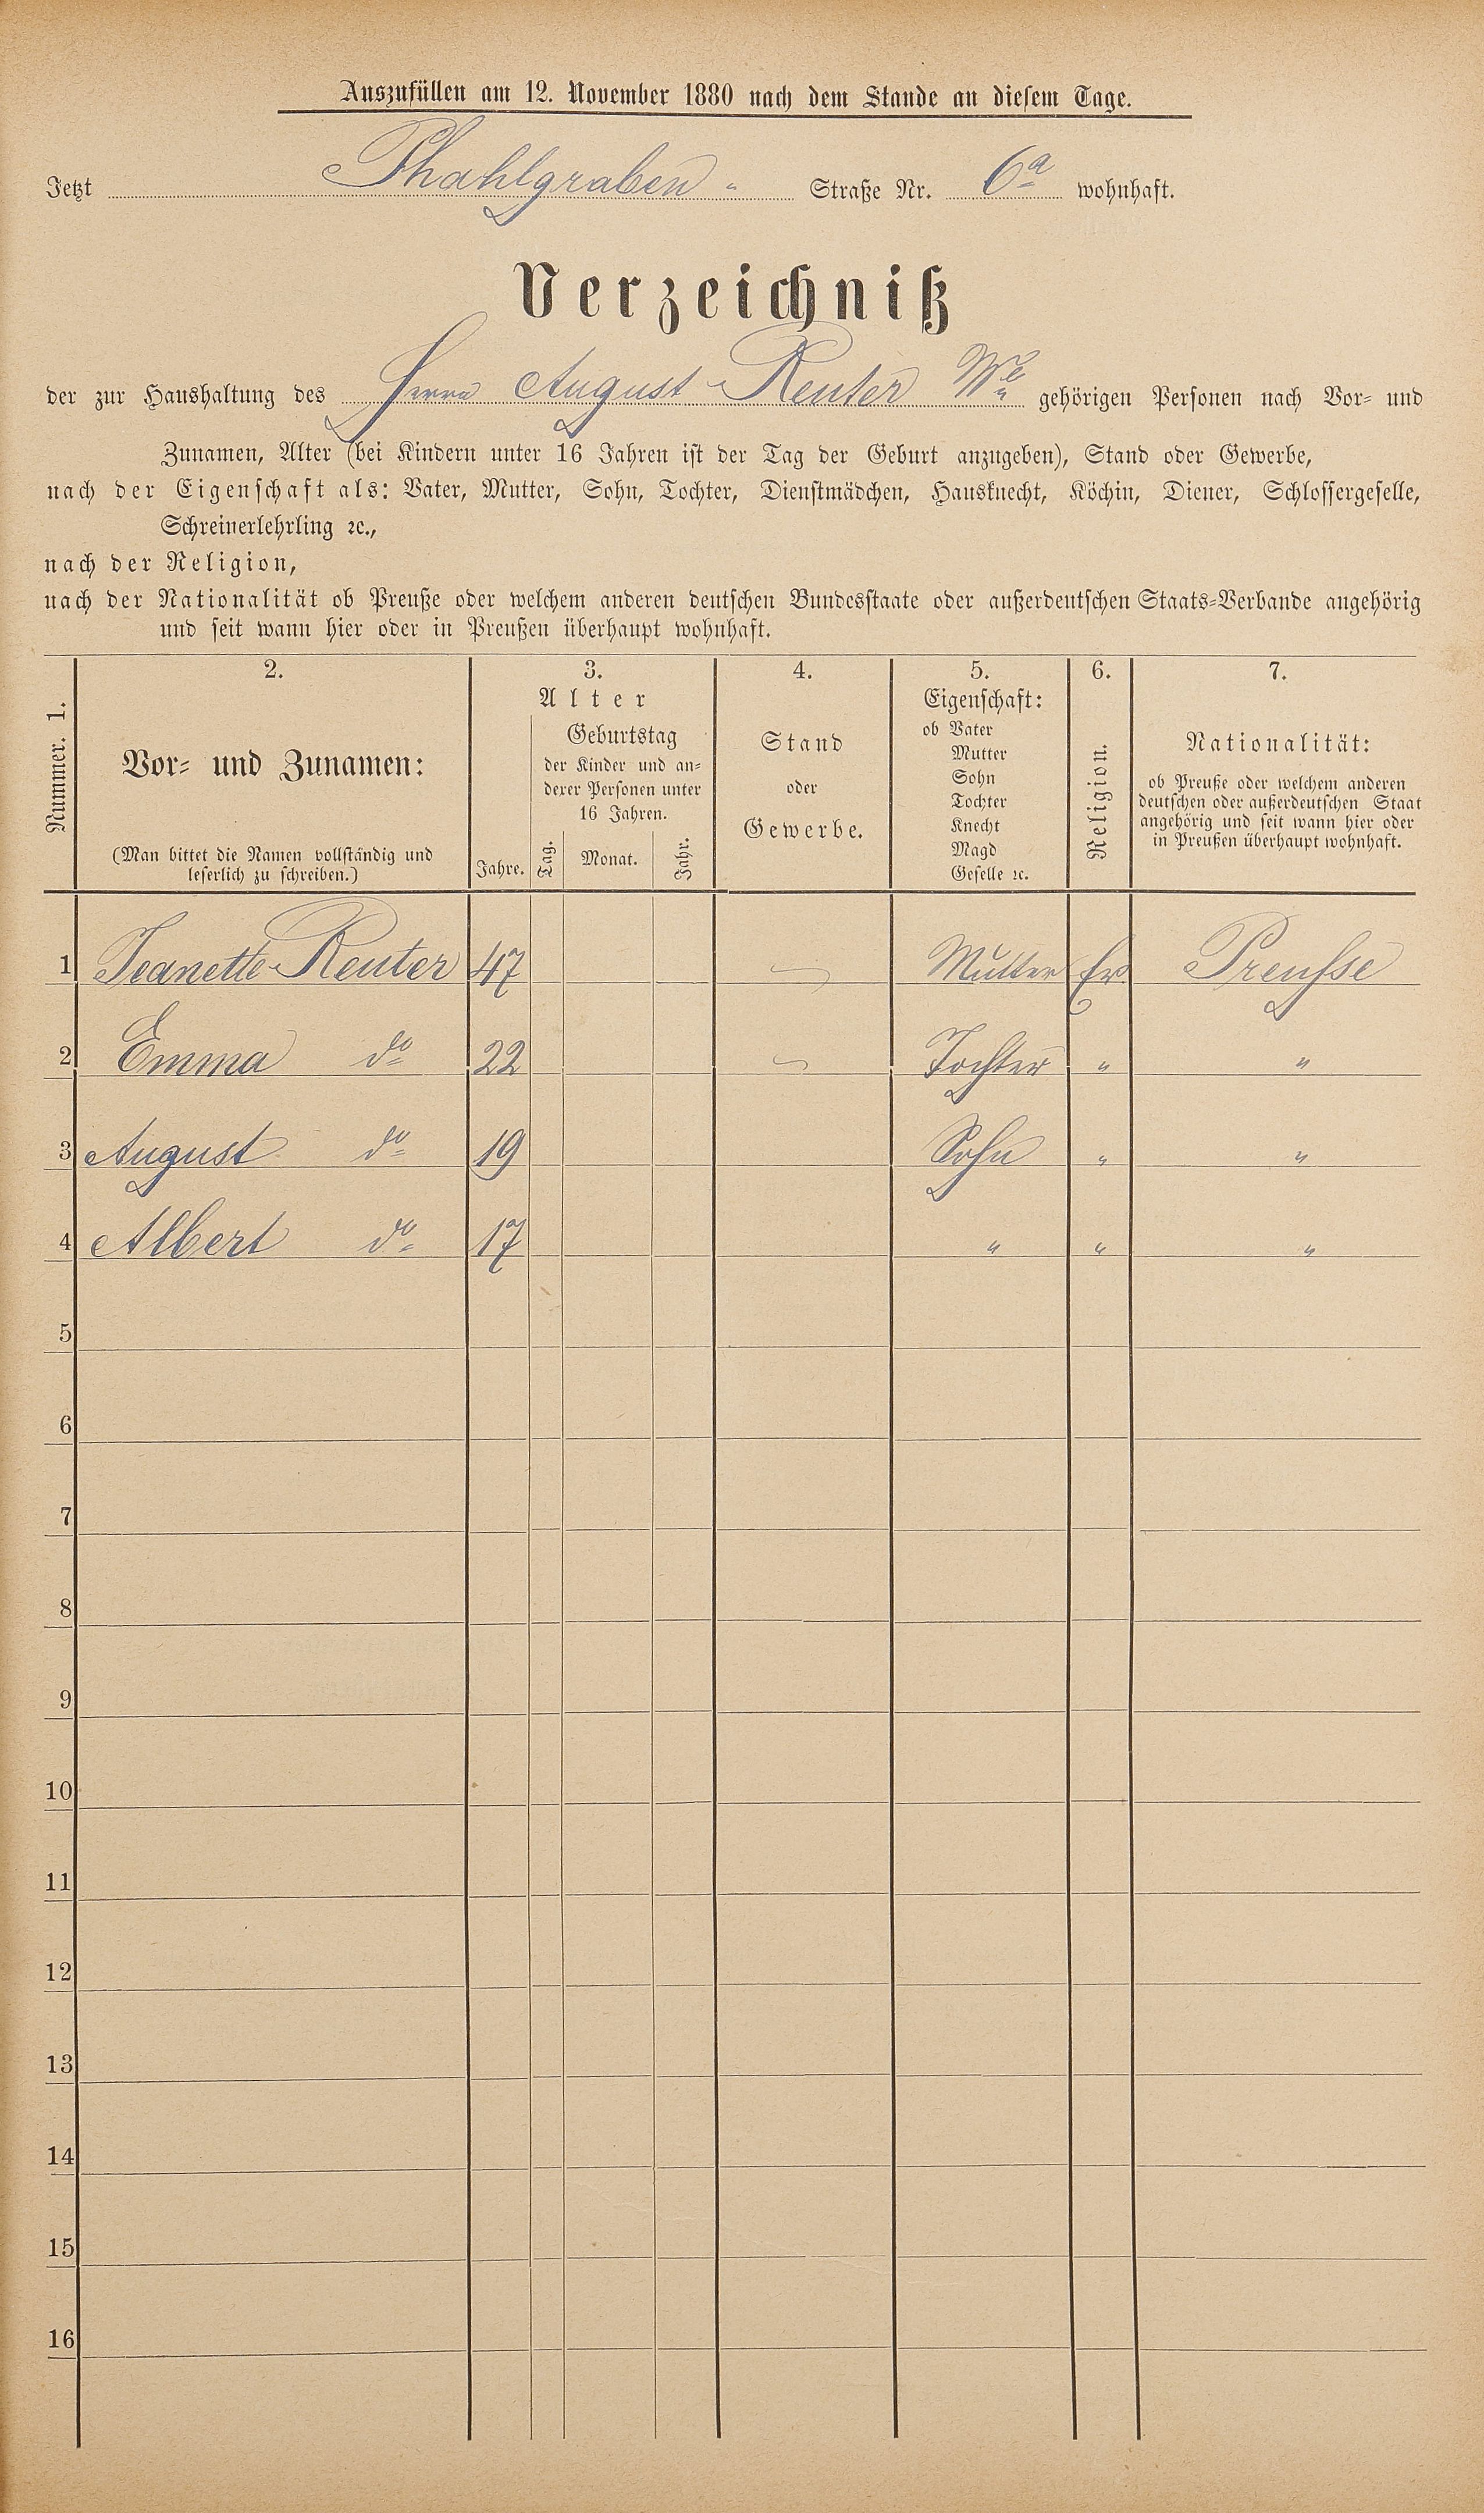 Auszufüllen am 12. November 1880 nach dem Stande an diesem Tage.
Jetzt Phahlgraben - Straße Nr. 6a wohnhaft.
Verzeichniß
der zur Haushaltung des Herrn August Reuter We gehörigen Personen nach Vor- und
Zunamen, Alter (bei Kindern unter 16 Jahren ist der Tag der Geburt anzugeben), Stand oder Gewerbe,
nach der Eigenschaft als: Vater, Mutter, Sohn, Tochter, Dienstmädchen, Hausknecht, Köchin, Diener, Schlossergeselle,
Schreinerlehrling ꝛc.,
nach der Religion,
nach der Nationalität ob Preuße oder welchem anderen deutschen Bundesstaate oder außerdeutschen Staats-Verbande angehörig
und seit wann hier oder in Preußen überhaupt wohnhaft.
Nummer. 1.
2.
Vor- und Zunamen:
(Man bittet die Namen vollständig und
leserlich zu schreiben.)
3.
Alter
Jahre.
Geburtstag
der Kinder und an-
derer Personen unter
16 Jahren.
Tag. Monat. Jahr.
4.
Stand
oder
Gewerbe.
5.
Eigenschaft:
ob Vater
Mutter
Sohn
Tochter
Knecht
Magd
Geselle ꝛc.
6.
Religion.
7.
Nationalität:
ob Preuße oder welchem anderen
deutschen oder außerdeutschen Staat
angehörig und seit wann hier oder
in Preußen überhaupt wohnhaft.
1 Jeanette Reuter 47 Mutter Ev Preusse
2 Emma do 22 Tochter " "
3 August do 19 Sohn " "
4 Albert do 17 " " "
5
6
7
8
9
10
11
12
13
14
15
16